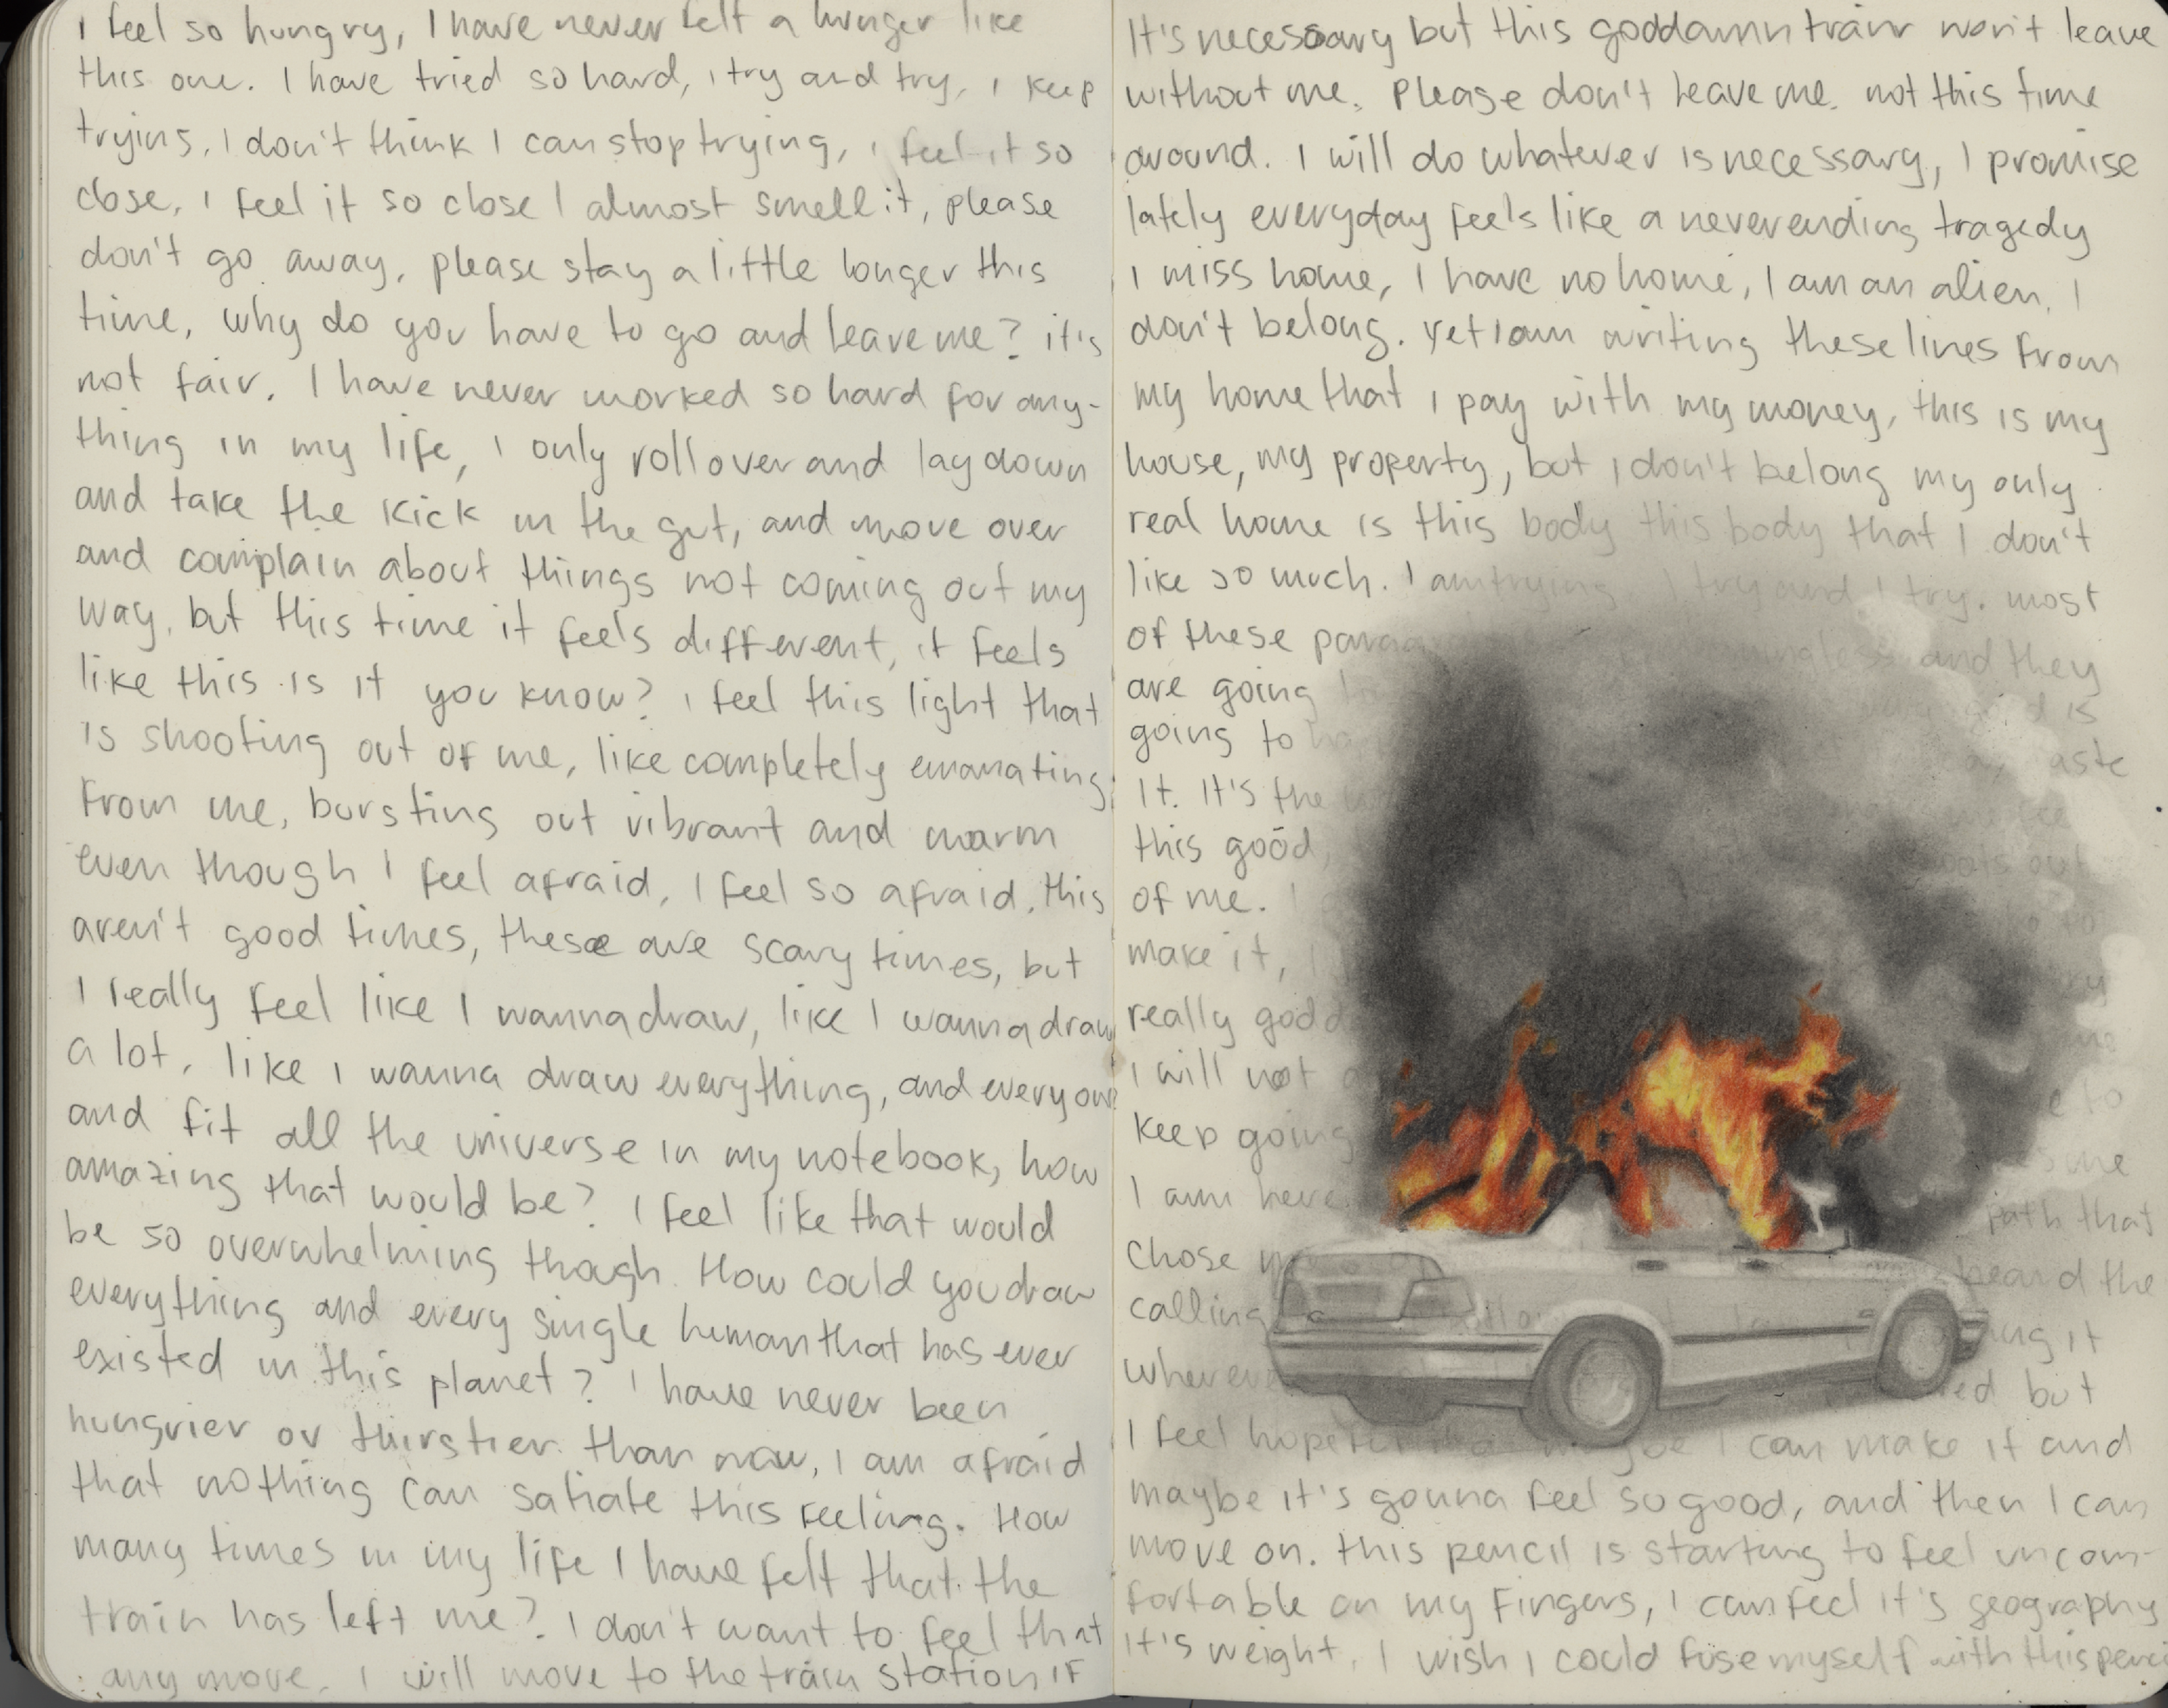 I feel so hungry, I have never felt a hunger like
this one. I have tried so hard, i try and try, I keep
trying, I don't think I can stop trying, i feel it so
close, I feel it so close I almost smell it, please
don't go away, please stay a little longer this
time, why do you have to go and leave me? it's
not fair. I have never worked so hard for any-
thing in my life, I only roll over and lay down
and take the kick in the gut, and move over
and complain about things not coming out my
way, but this time it feels different, it feels
like this is it you know? i feel this light that
is shooting out of me, like completely emanating
from me, bursting out vibrant and warm
even though I feel afraid, I feel so afraid, this
aren't good times, these are scary times, but
I really feel like I wanna draw, like I wanna draw
a lot, like I wanna draw everything, and everyone
and fit all the universe in my notebook, how
amazing that would be? I feel like that would
be so overwhelming though. How could you draw
everything and every single human that has ever
existed in this planet? I have never been
hungrier or thirstier than now, I am afraid
that nothing can satiate this feeling. How
many times in my life I have felt that the
train has left me? I don't want to feel that
any more. I will move to the train station if
It's necessary but this goddamn train won't leave
without me. Please don't leave me. not this time
around. I will do whatever is necessary, I promise
lately everyday feels like a neverending tragedy
I miss home, I have no home, I am an alien, I
don't belong. Yet I am writing these lines from
my home that I pay with my money, this is my
house, my property, but I don't belong my only
real home is this body this body that I don't
like so much. I am trying. I try and I try. most
of these and they
are going is
going to taste
it. It's the
this good, out
of me. I
make it, I
really
I will not
keep going to
I am here. me
chose path that
calling heard the
it
but
I feel hopeful I can make it and
maybe it's gonna feel so good, and then I can
move on. this pencil is starting to feel uncom-
fortable on my fingers, I can feel it's geography
it's weight, I wish I could fuse myself with this